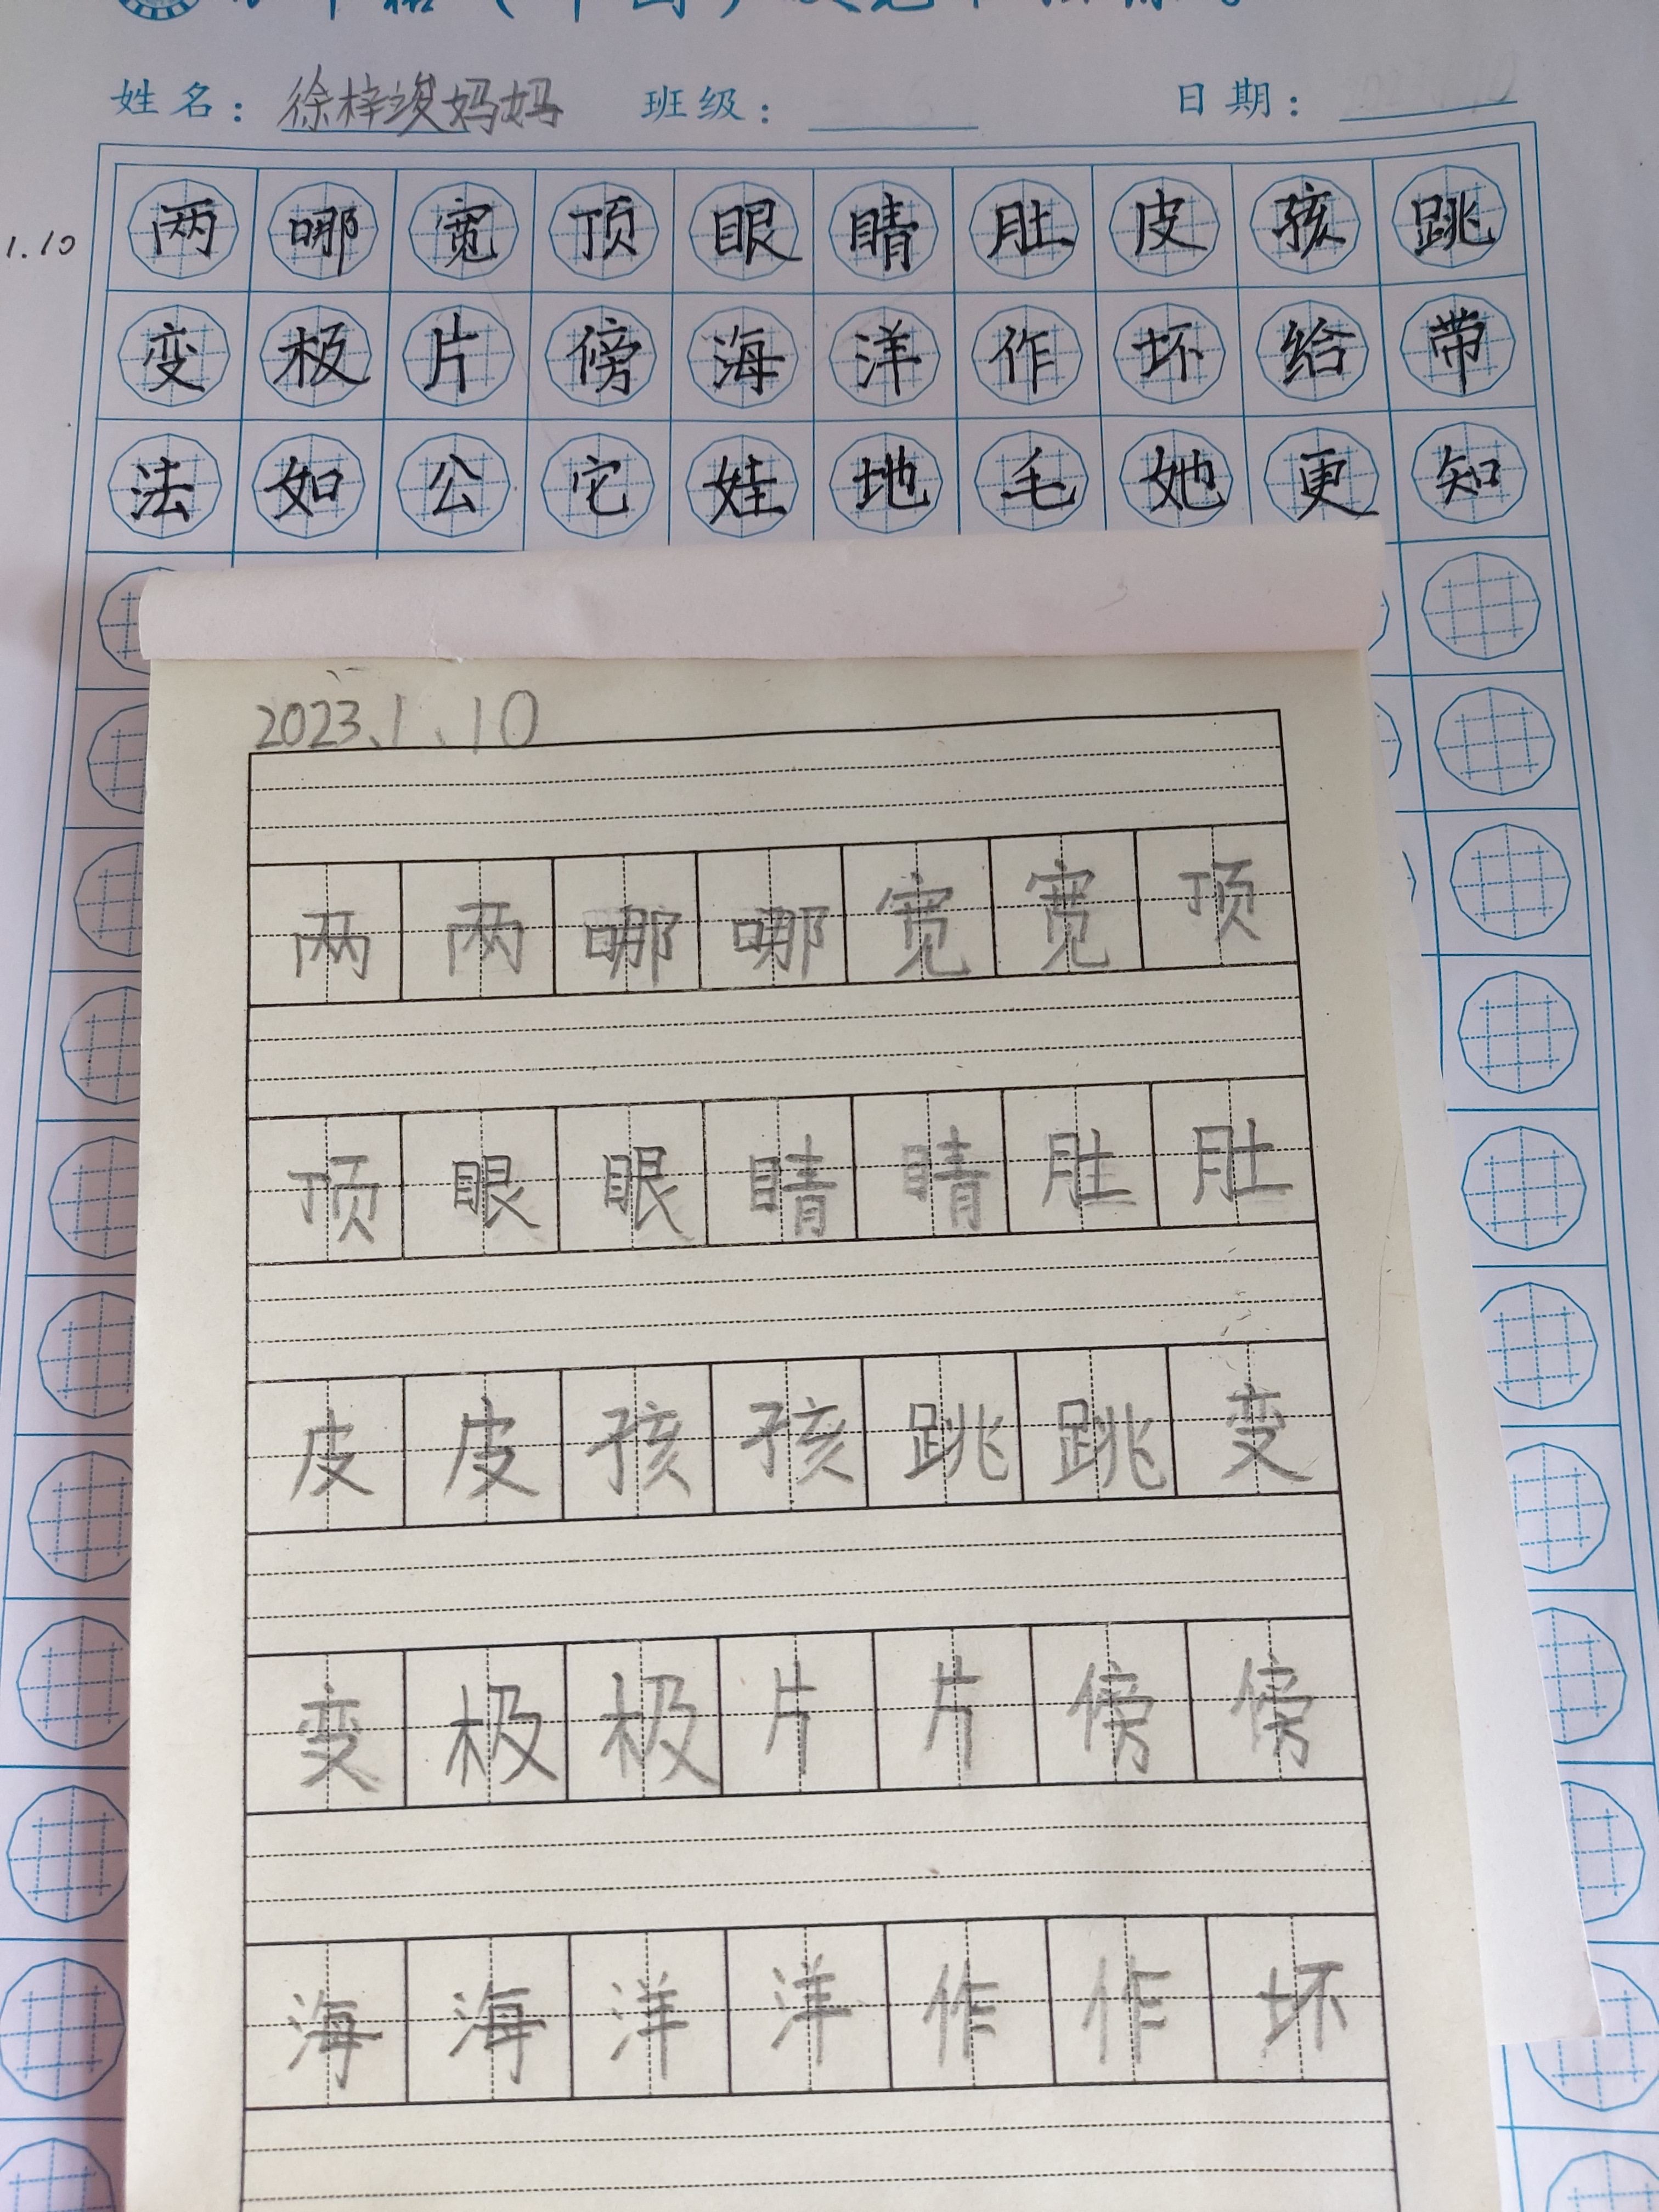 姓名：徐梓竣妈妈 班级： 日期：
1.10 两哪宽顶眼睛肚皮孩跳
变极片傍海洋作坏给带
法如公它娃地毛她更知
2023、1、10
两两哪哪宽宽顶
顶眼眼睛睛肚肚
皮皮孩孩跳跳变
变极极片片傍傍
海海洋洋作作坏